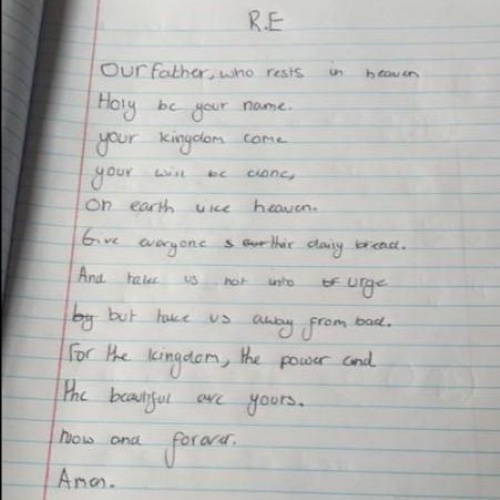 R.E
Our Father, who rests in heaven
Holy be your name.
your kingdom come
your will be done,
On earth like heaven.
Give everyone s our thir daily bread.
And take us not into of urge
by but take us away from bad.
For the kingdom, the power and
the beautiful are yours.
Now and forever.
Amen.